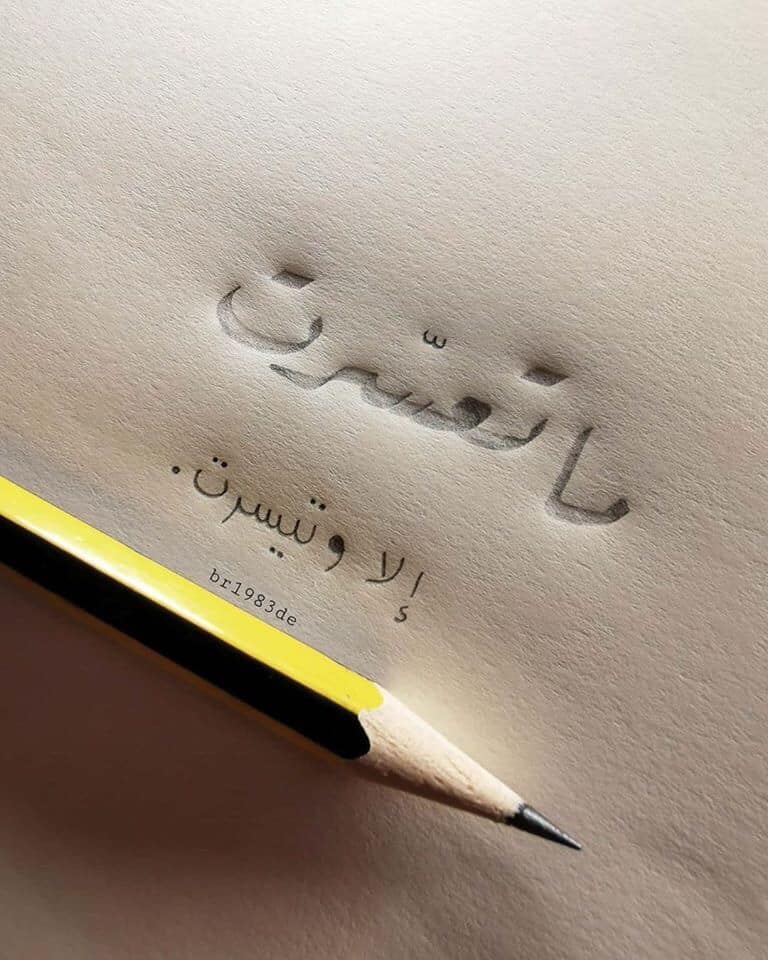 ما تعسّرت
إلا وتيسرت.
br1983de